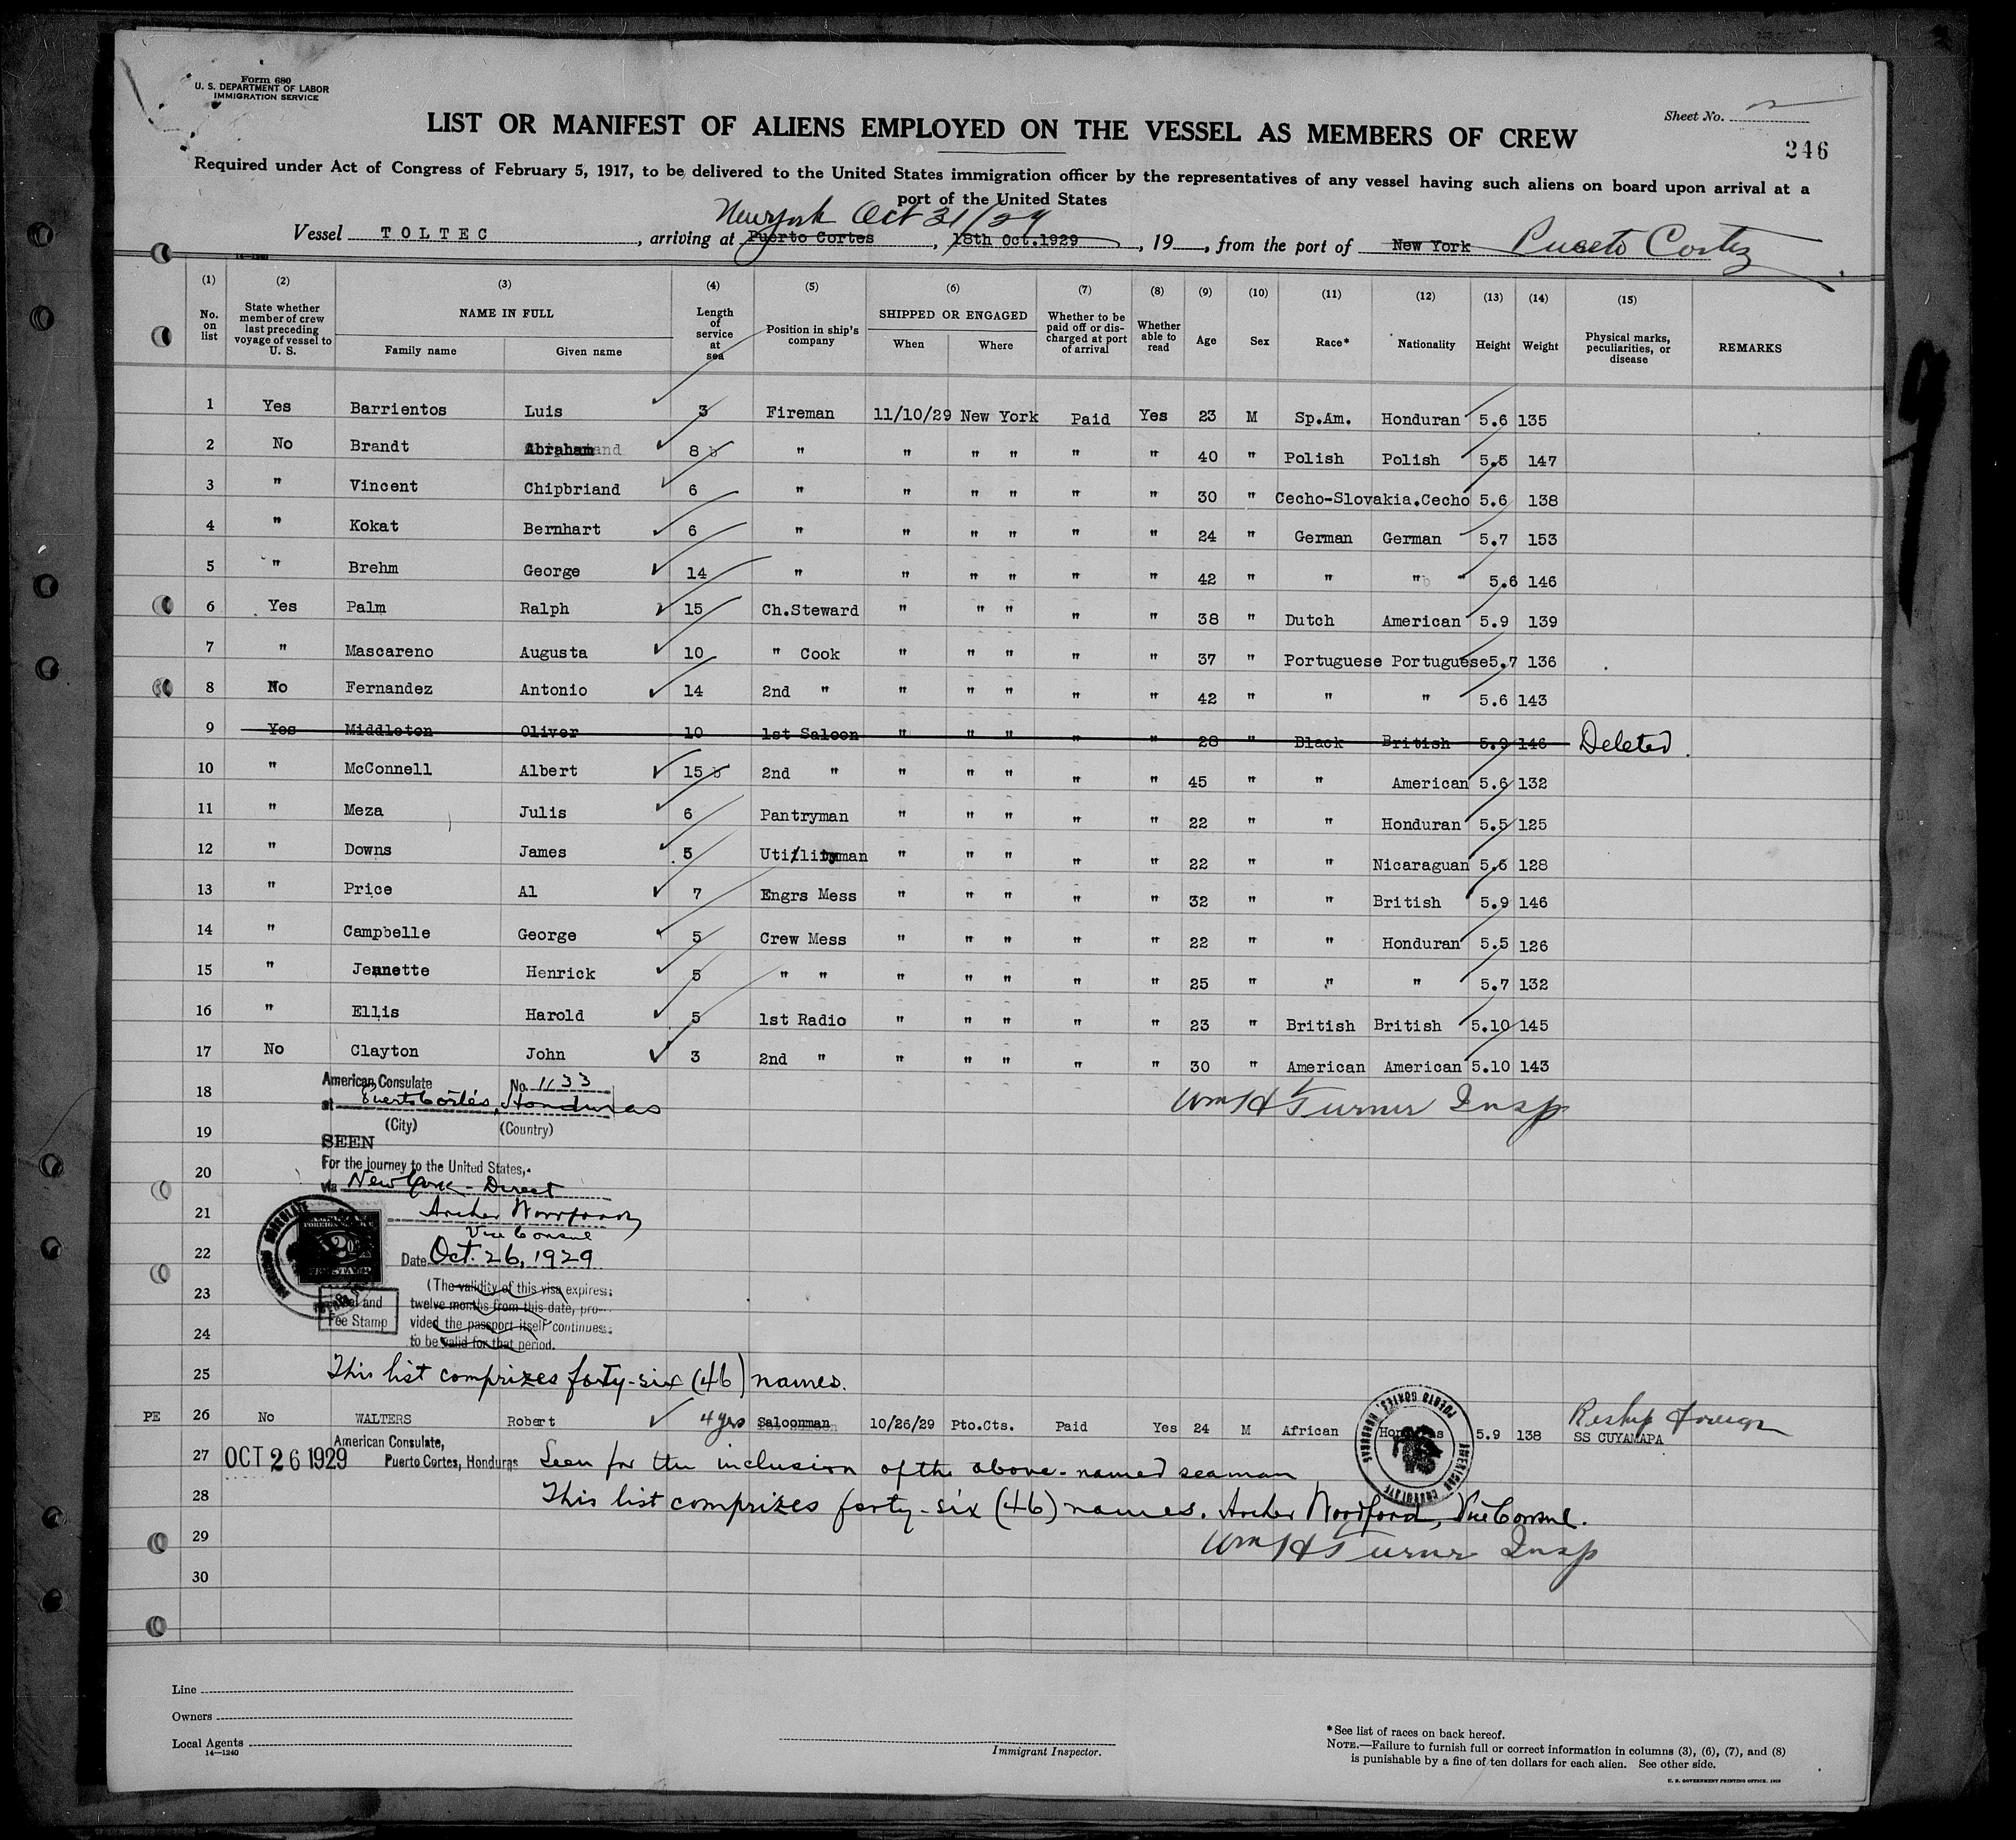 Form 680
U. S. DEPARTMENT OF LABOR
IMMIGRATION SERVICE
Sheet No.
LIST OR MANIFEST OF ALIENS EMPLOYED ON THE VESSEL AS MEMBERS OF CREW
246
Required under Act of Congress of February 5, 1917, to be delivered to the United States immigration officer by the representatives of any vessel having such aliens on board upon arrival at a
port of the United States
New York Oct 31/29
Vessel TOLTEC, arriving at Puerto Cortes, 18th Oct.1929, 19, from the port of New York Puerto Cortez
14-1240
(1) (2) (3) (4) (5) (6) (7) (8) (9) (10) (11) (12) (13) (14) (15)
No. on list State whether member of crew last preceding voyage of vessel to U. S. NAME IN FULL Family name Given name Length of service at sea Position in ship's company SHIPPED OR ENGAGED When Where Whether to be paid off or discharged at port of arrival Whether able to read Age Sex Race* Nationality Height Weight Physical marks, peculiarities, or disease REMARKS
1 Yes Barrientos Luis 3 Fireman 11/10/29 New York Paid Yes 23 M Sp.Am. Honduran 5.6 135
2 No Brandt Abraham 8 " " " " " " 40 " Polish Polish 5.5 147
3 " Vincent Chipbriand 6 " " " " " " 30 " Cecho-Slovakia.Cecho 5.6 138
4 " Kokat Bernhart 6 " " " " " " 24 " German German 5.7 153
5 " Brehm George 14 " " " " " " 42 " " " " 5.6 146
6 Yes Palm Ralph 15 Ch.Steward " " " " " 38 " Dutch American 5.9 139
7 " Mascareno Augusta 10 " Cook " " " " " 37 " Portuguese Portuguese 5.7 136
8 No Fernandez Antonio 14 2nd " " " " " " 42 " " " 5.6 143
9 Yes Middleton Oliver 10 1st Saloon " " " " " 28 " Black British 5.9 146 Deleted.
10 " McConnell Albert 15 2nd " " " " " " 45 " " American 5.6 132
11 " Meza Julis 6 Pantryman " " " " " 22 " " Honduran 5.5 125
12 " Downs James 5 Utilityman " " " " " 22 " " Nicaraguan 5.6 128
13 " Price Al 7 Engrs Mess " " " " " 32 " " British 5.9 146
14 " Campbelle George 5 Crew Mess " " " " " 22 " " Honduran 5.5 126
15 " Jeannette Henrick 5 " " " " " " " 25 " " " 5.7 132
16 " Ellis Harold 5 1st Radio " " " " " 23 " British British 5.10 145
17 No Clayton John 3 2nd " " " " " " 30 " American American 5.10 143
American Consulate No. 1133
18 at Puerto Cortés, Honduras Wm H Turner Insp
(City) (Country)
19
SEEN
For the journey to the United States,
20
via New York - Direct
21 Archer Woodford
Vice Consul
22 Date Oct. 26, 1929
(The validity of this visa expires
23
twelve months from this date, pro-
vided the passport itself continues
Seal and
Fee Stamp
24
to be valid for that period.
25 This list comprizes forty-six (46) names.
PE 26 No WALTERS Robert 4 yrs Saloonman 10/26/29 Pto.Cts. Paid Yes 24 M African Honduras 5.9 138 Reship foreign
SS CUYAMAPA
American Consulate,
27 OCT 26 1929 Puerto Cortes, Honduras Seen for the inclusion of the above-named seaman
AMERICAN CONSULATE PUERTO CORTES, HONDURAS
28 This list comprizes forty-six (46) names. Archer Woodford, Vice Consul.
29 Wm H Turner Insp
30
Line
Owners
Local Agents
14—1240
Immigrant Inspector.
*See list of races on back hereof.
NOTE.—Failure to furnish full or correct information in columns (3), (6), (7), and (8)
is punishable by a fine of ten dollars for each alien. See other side.
U. S. GOVERNMENT PRINTING OFFICE